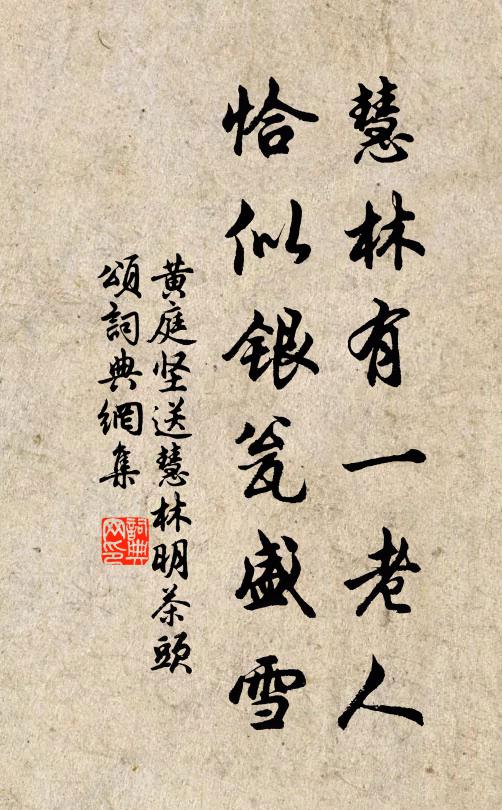 慧林有一老人
恰似银瓮盛雪
黄庭坚送慧林明茶頭
頌詞典網集
詞典网印